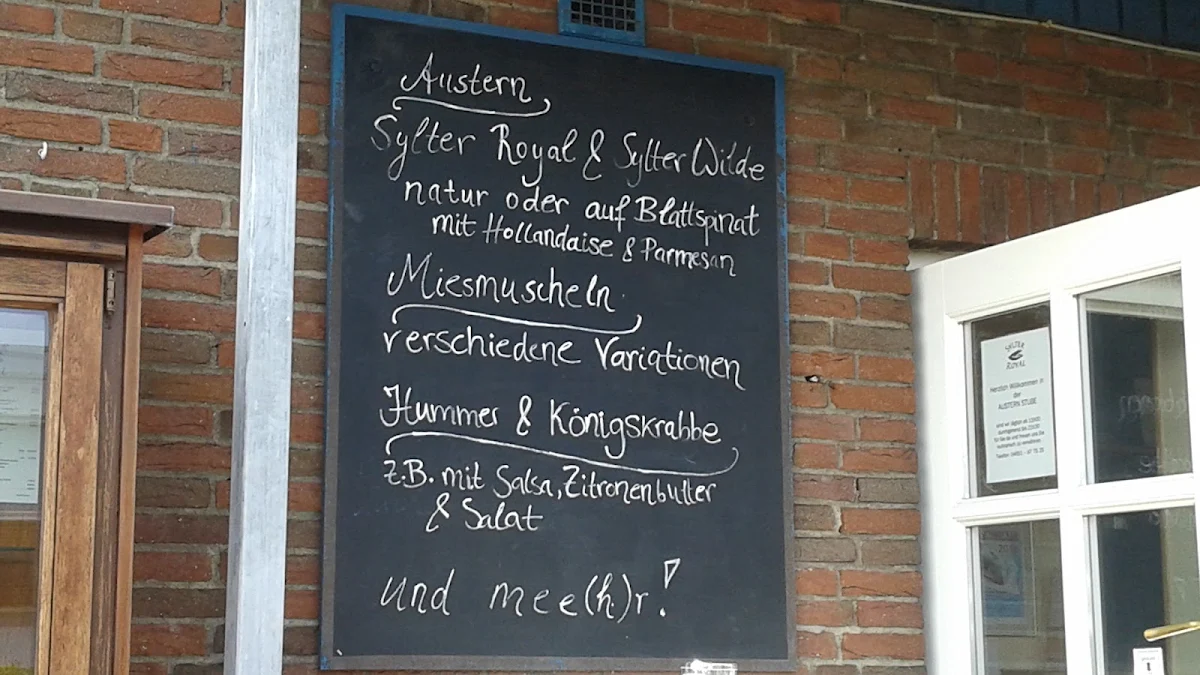 Austern
Sylter Royal & Sylter Wilde
natur oder auf Blattspinat
mit Hollandaise & Parmesan
Miesmuscheln
verschiedene Variationen
Hummer & Königskrabbe
z.B. mit Salsa, Zitronenbutter
& Salat
und mee(h)r!
SYLTER
ROYAL
Herzlich Willkommen in
der
AUSTERN STUBE